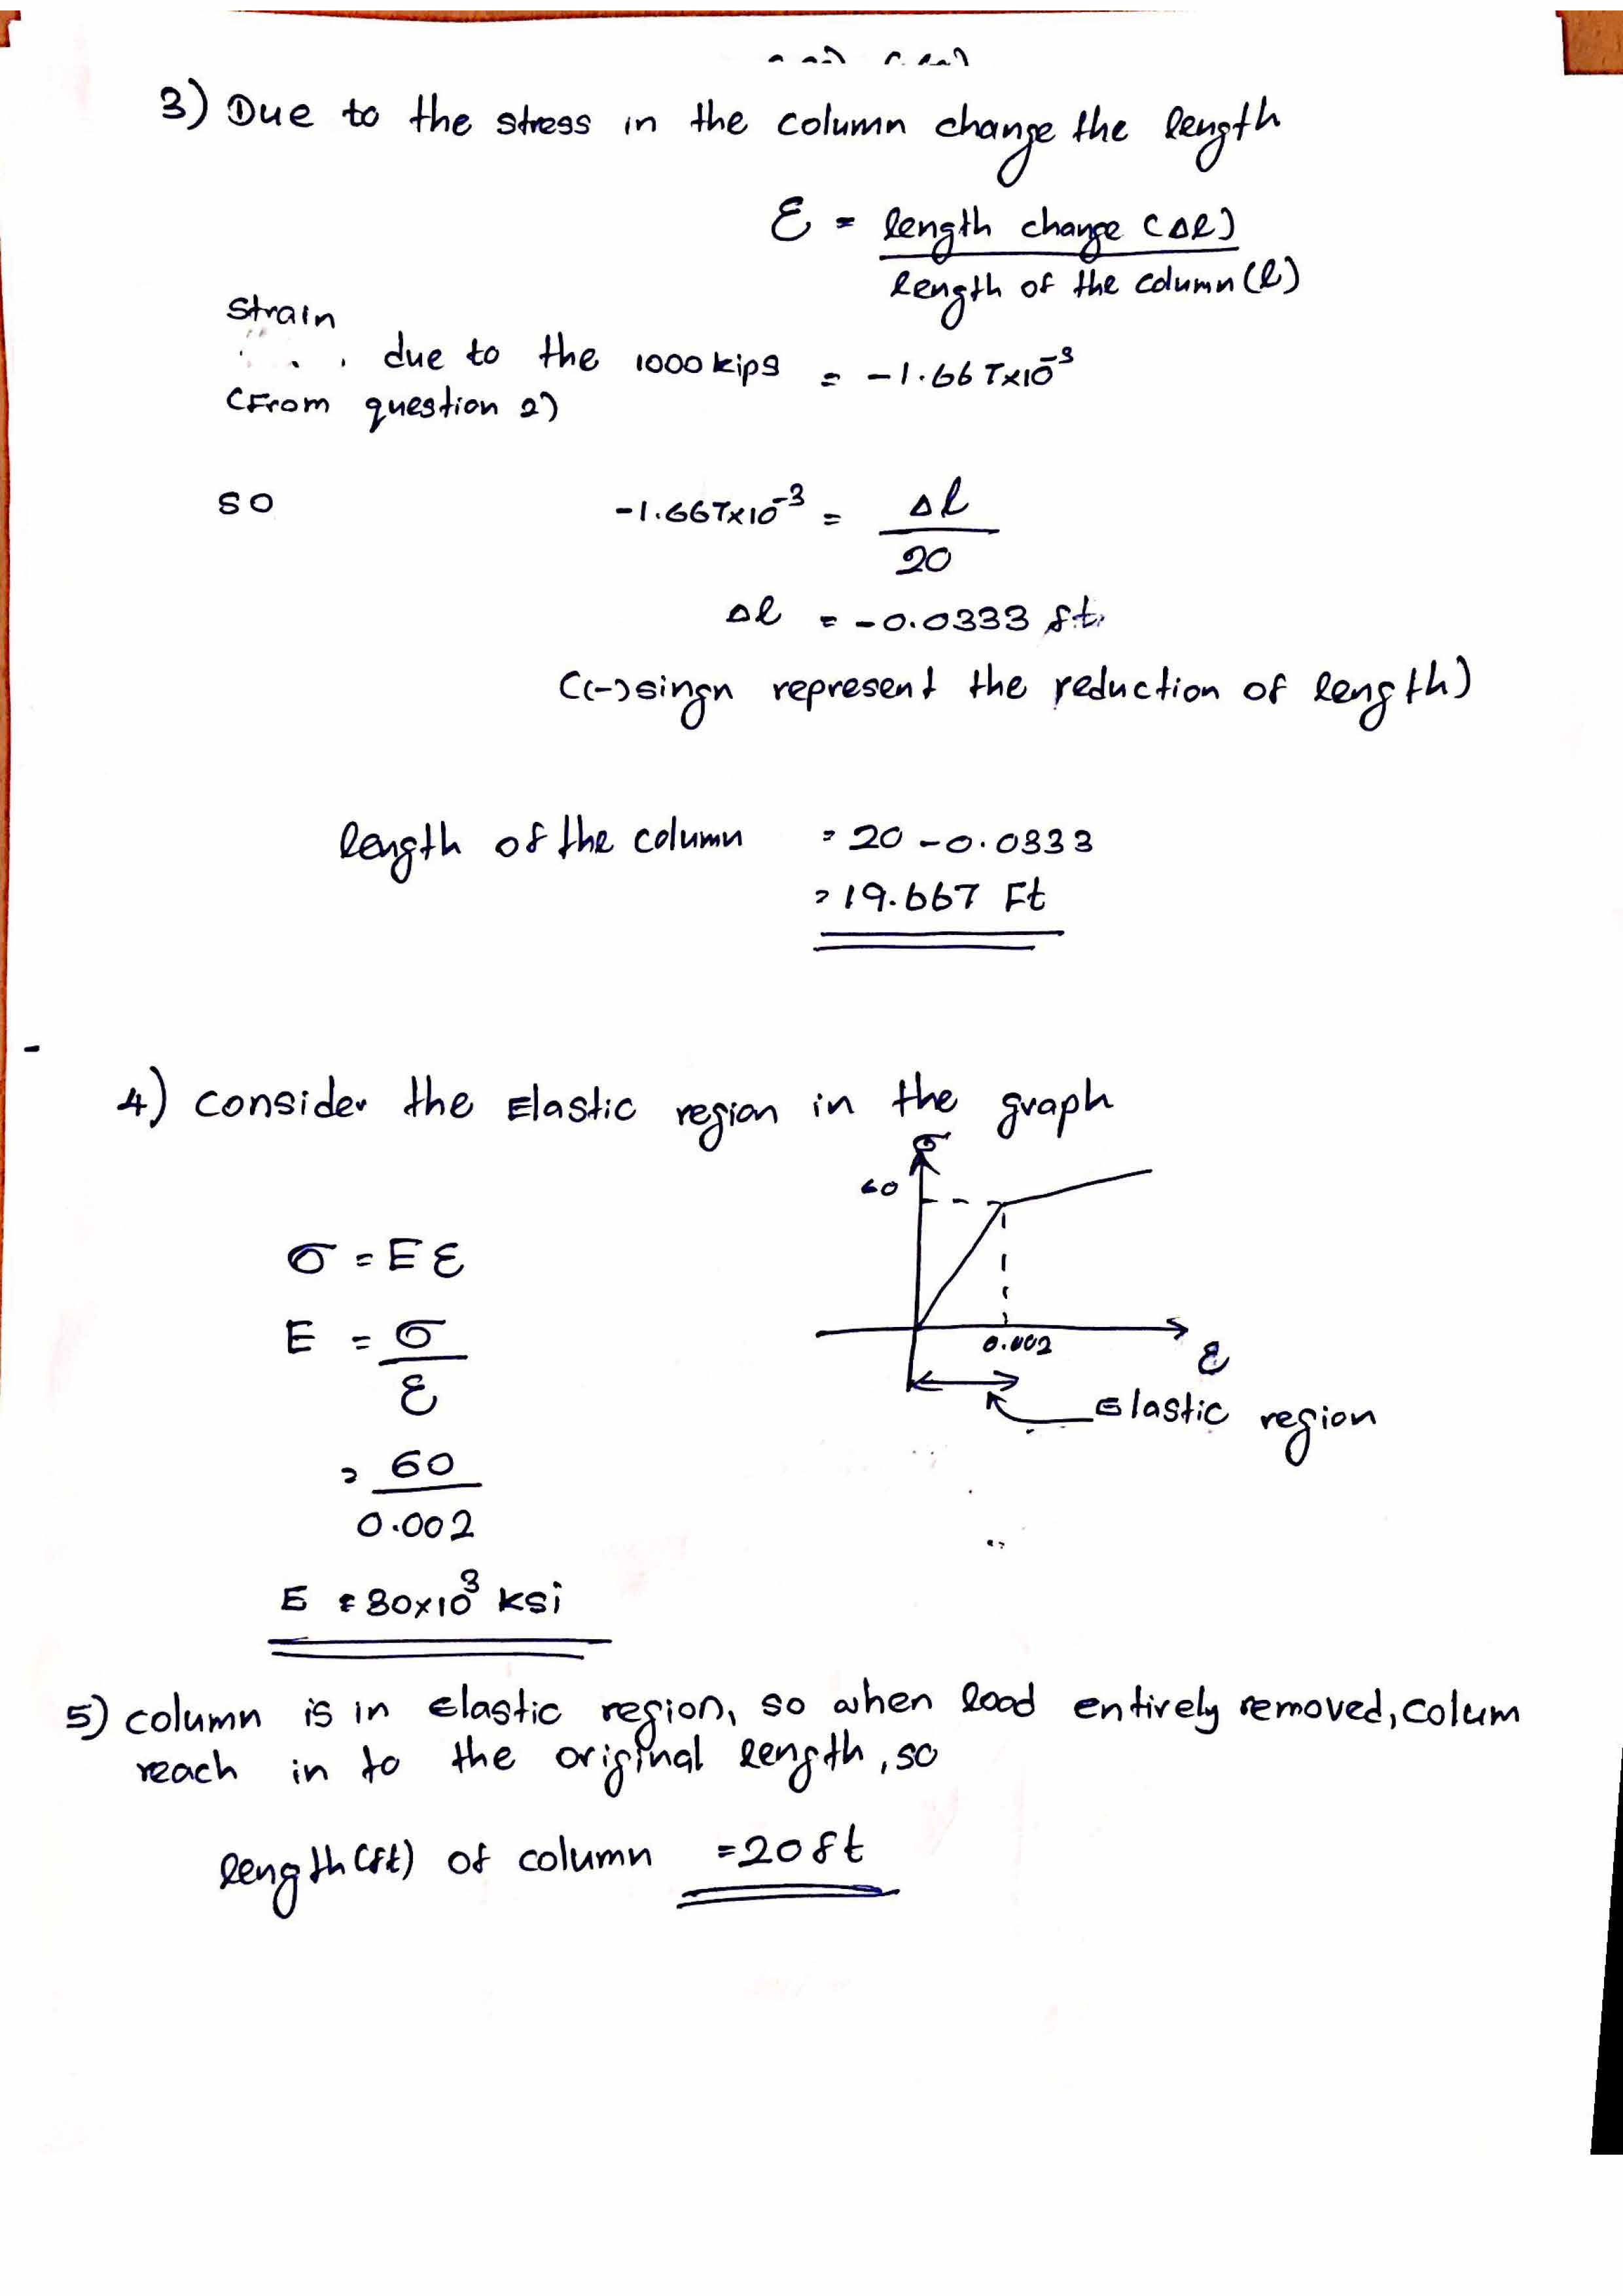 3) Due to the stress in the column change the length
ε = length change (Δl)
length of the column (l)
Strain
due to the 1000 kips = -1.667x10^-3
(From question 2)
so -1.667x10^-3 = Δl
20
Δl = -0.0333 ft.
((-) singn represent the reduction of length)
length of the column = 20 - 0.0333
= 19.667 Ft
4) consider the Elastic region in the graph
σ
60
σ = E ε
E = σ
ε
0.002
ε
Elastic region
= 60
0.002
E = 30x10^3 ksi
5) column is in elastic region, so when load entirely removed, colum
reach in to the original length, so
length (ft) of column = 20 ft